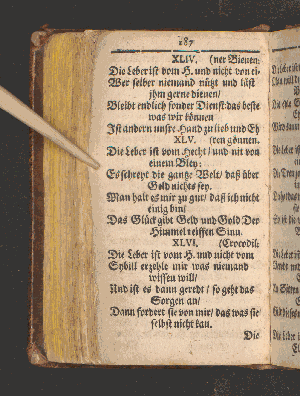 187
XLIV. (ner Bienen:
Die Leber ist vom H. und nicht von ei-
Wer selber niemand nützt und läst
jhm gerne dienen/
Bleibt endlich sonder Dienst das beste
was wir können
Ist andern unsre Hand zu lieb und Eh
XLV. (ren gönnen.
Die Leber ist vom Hecht/ und nit von
einem Bley:
Es schreyt die gantze Welt/ daß über
Gold nichts sey.
Man hält es mir zu gut/ daß ich nicht
einig bin/
Das Glück gibt Geld und Gold Der
Himmel reissen Sinn.
XLVI. (Crocodil:
Die Leber ist vom H. und nicht vom
Sybill erzehle mir was niemand
wissen will/
Und ist es dann geredt/ so geht das
Sorgen an/
Dann fordert sie von mir/ das was sie
selbst nicht kan.
Die